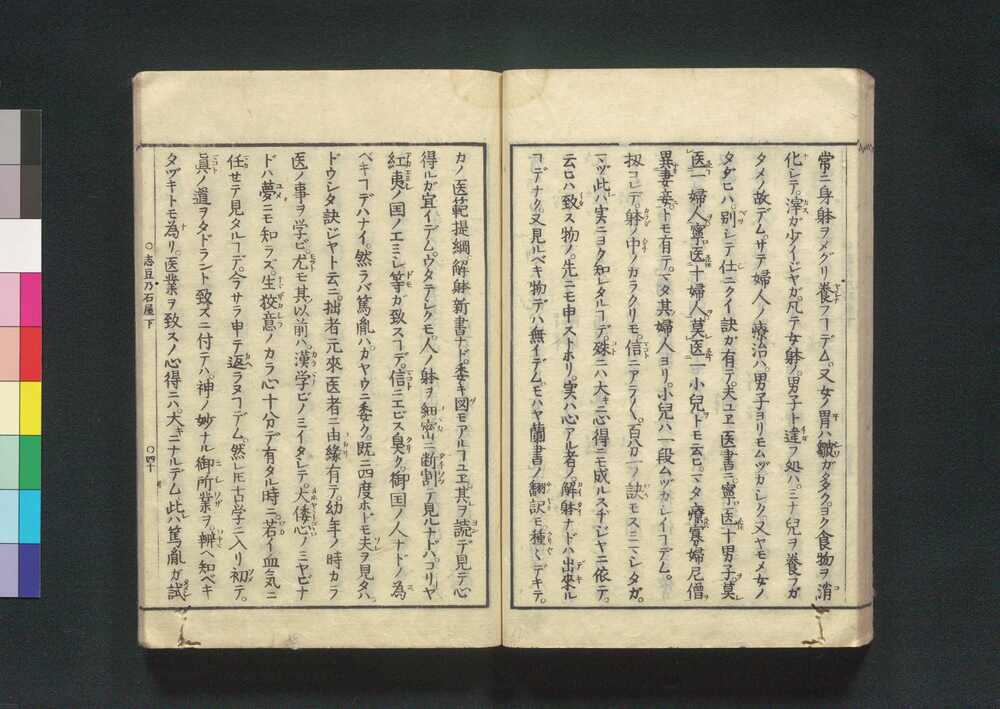 常ニ身躰ヲメグリ養フヿデム。又女ノ胃ハ皺ガタタクヨク食物ヲ消
化シテ。滓ガ少イジヤガ。凡テ女躰ノ。男子ト違フ処ハ。ミナ兒ヲ養フガ
タメノ故デム。サテ婦人ノ療治ハ。男子ヨリモムツカシク。又ヤモメ女ノ
タグヒハ。別シテ仕ニクイ訣ガ有テ。夫ユヱ医書ニ。寧医十男子莫
医一婦人。寧医十婦人莫医一小兒。トモ云ヒ。マタ療寡婦尼僧
異妻妾。トモ有テ。マタ其婦人ヨリ。小兒ハ一段ムヅカシイヿデム。
扨コレデ。躰ノ中ノカラクリモ。信ニアラ〱。百分一ノ訣モスミマシタガ。
マヅ此ハ実ニヨク知レタルヿデ。殊ニハ大キニ心得ニモ成ルスヂジヤニ依テ。
云ヒハ致ス物ノ。先ニモ申ストホリ。実ハ心アル者ノ。解躰ナドハ出來ル
ヿデナク。又見ルベキ物デハ無イデム。モハヤ蘭書ノ翻訳モ。種〻デキテ。
カノ医範提綱。解躰新書ナド。委キ図モアルヿユヱ。其ヲ読デ見テ心
得ルガ宜イデム。ウタテシクモ。人ノ躰ヲ細密ニ断割テ見ルナドハ。ゴリヤ
紅夷ノ国ノエミシ等ガ致スヿデ。信ニエビス臭ク。御国ノ人ナドノ為
ベキヿデハナイ。然ラバ篤胤ハ。ガヤウニ委ク。既ニ四度ホドモ夫ヲ見タハ。
ドウシタ訣ジヤト云ニ。拙者元來医者ニ由縁有テ。幼年ノ時カラ
医ノ事ヲ学ビ。尤モ其以前ハ。漢学ビノミイタシテ。大倭心ノミヤビナ
ドハ夢ニモ知ラズ。生狡意ノカラ心十分デ有タル時ニ。若イ血気ニ
任セテ見タルヿデ。今サラ申テ返ラヌヿデム。然レ𪜈古学ニ入リ初テ。
眞ノ道ヲタドラント致スニ付テハ。神ノ妙ナル御所業ヲ。辨ヘ知ベキ
タヅキトモ為リ。医業ヲ致スノ心得ニハ。大キニナルデム。此ハ篤胤ガ試
○志豆乃石屋下 ○四十